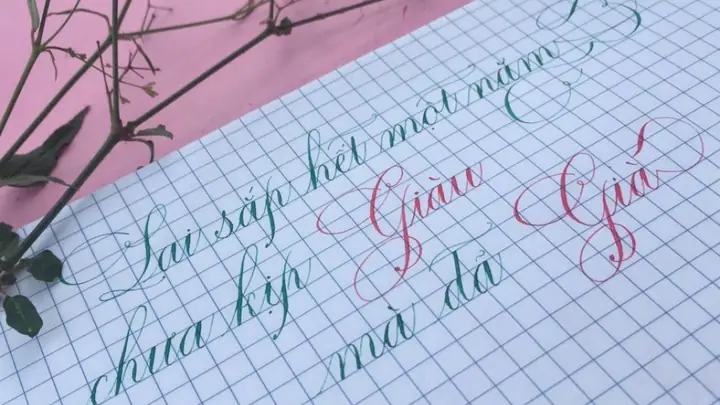 Lại sắp hết một năm
chưa kịp Giàu
mà đã Già